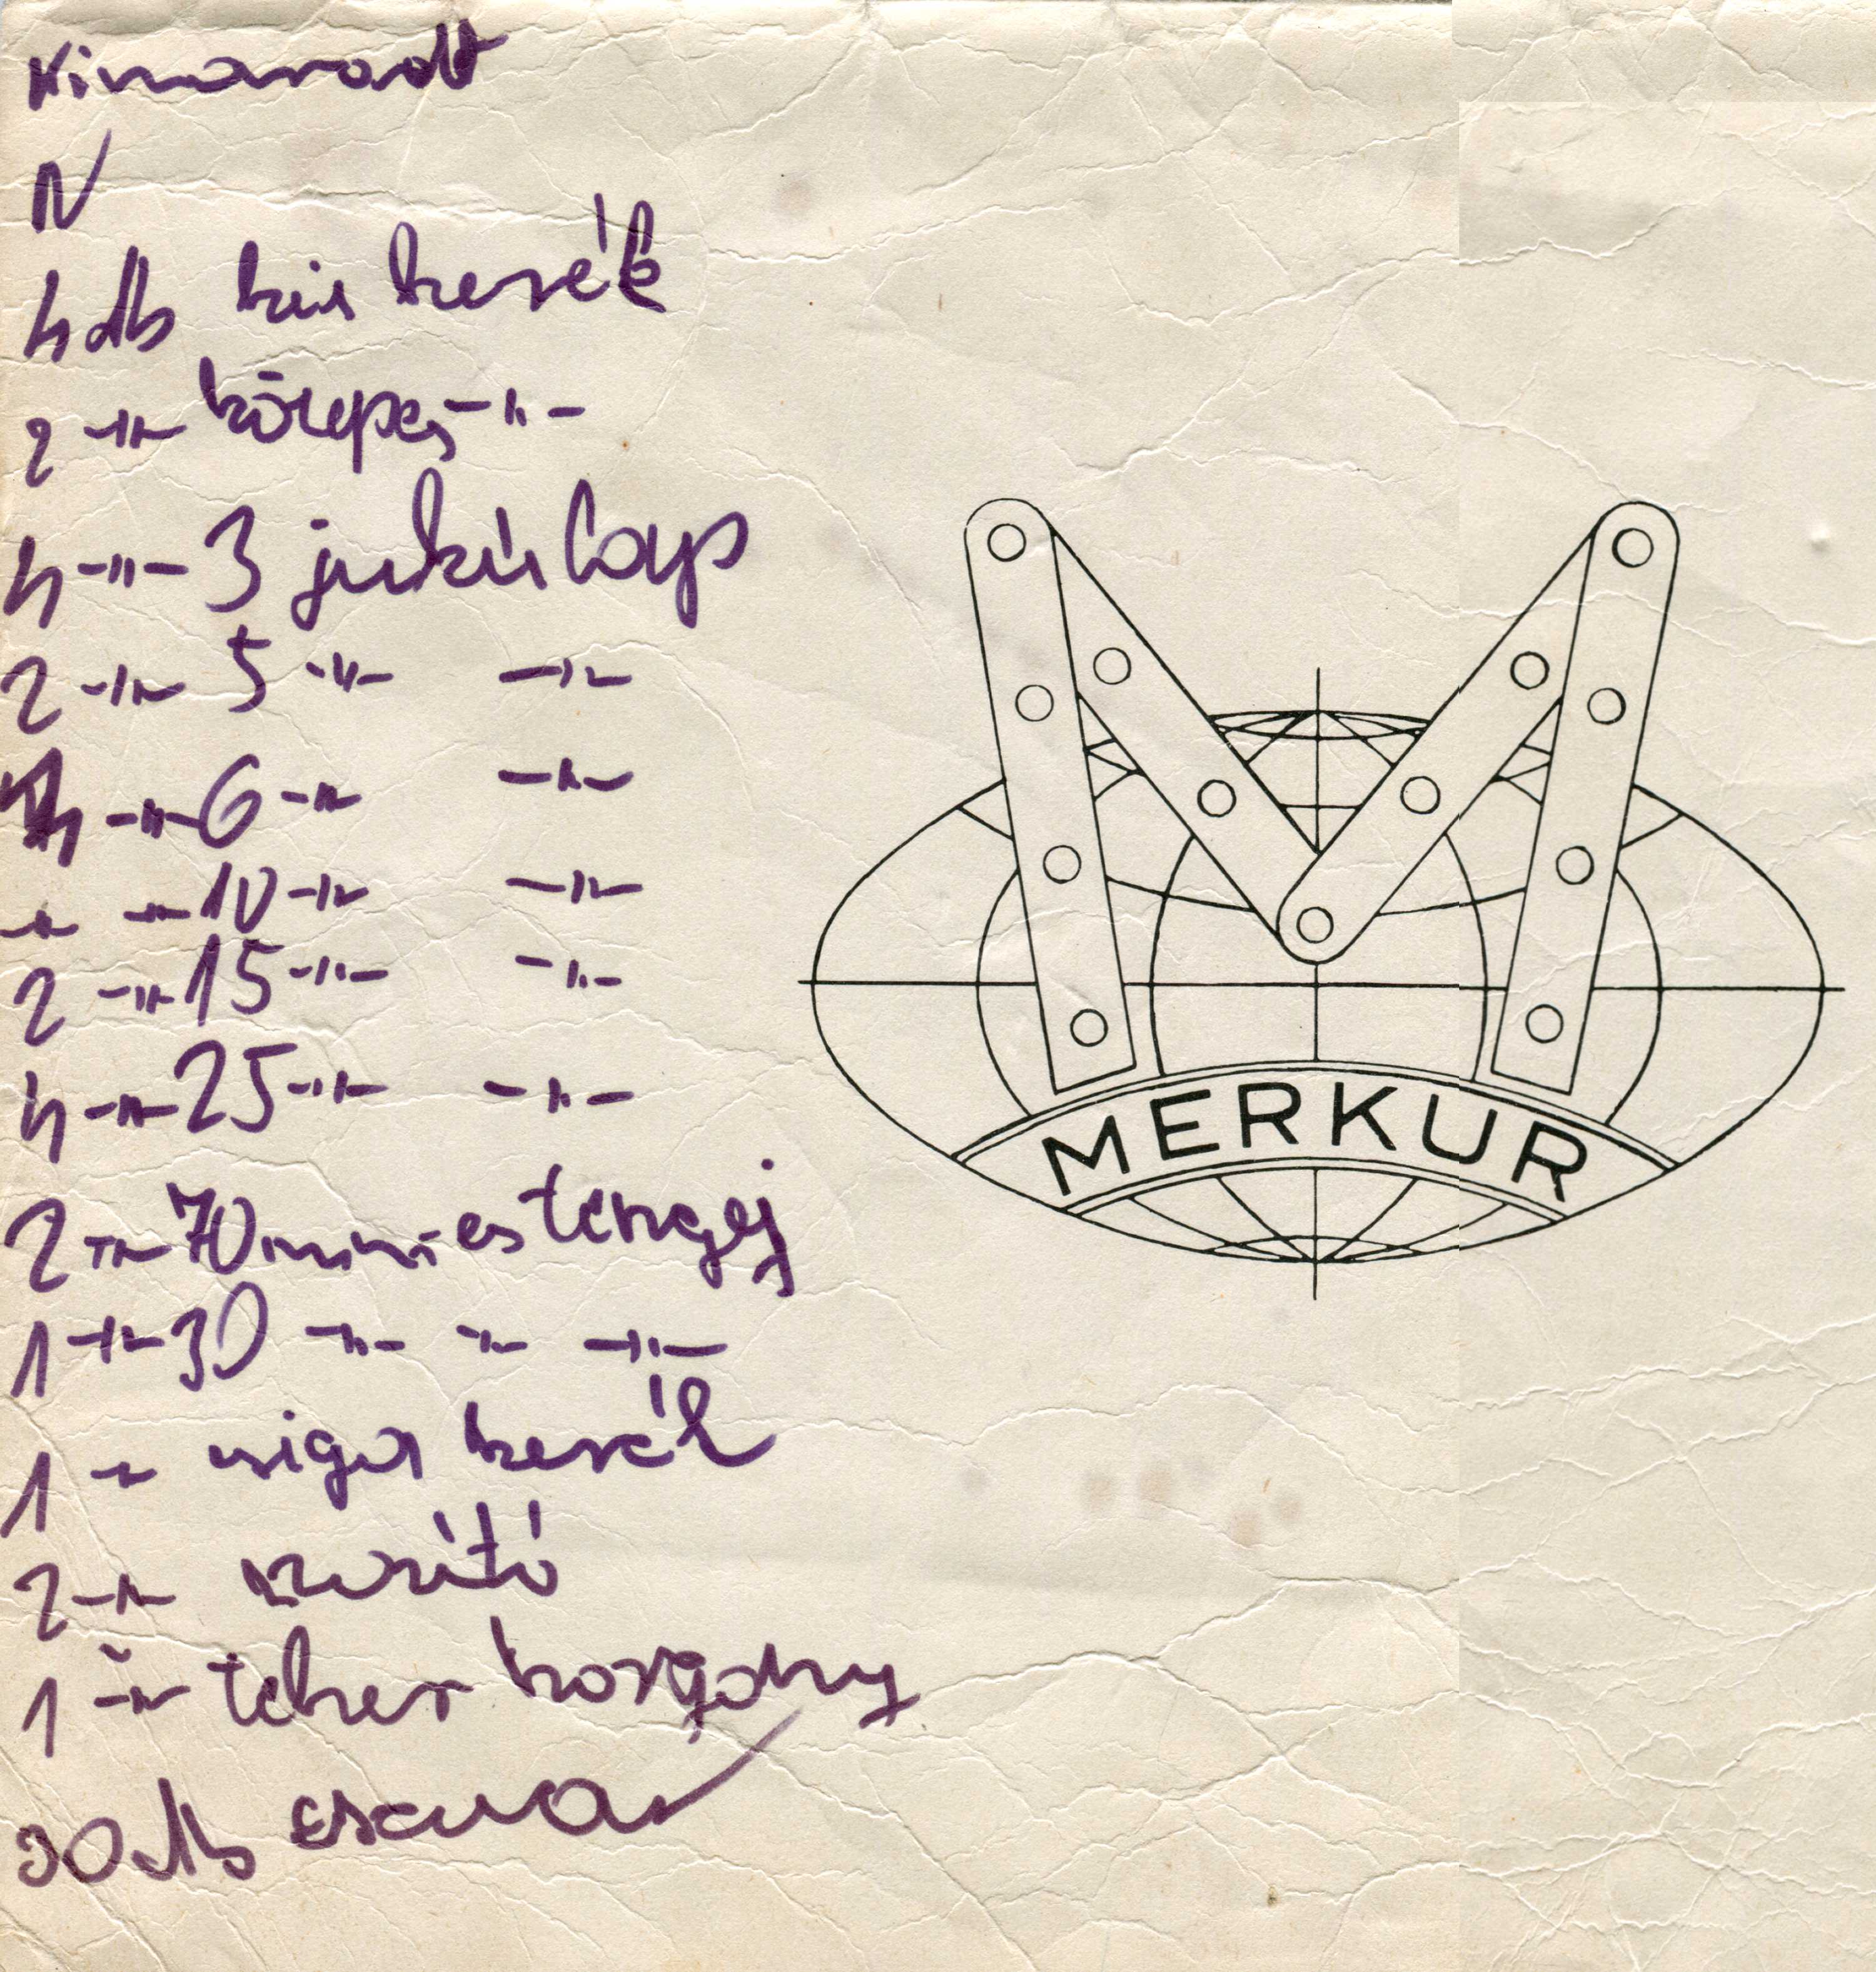 Kimaradt
N
4 db kis kerék
2 -"- közepes -"-
4 -"- 3 jukús lap
2 -"- 5 -"- -"-
4 -"- 6 -"- -"-
-"- -"- 10 -"- -"-
2 -"- 15 -"- -"-
4 -"- 25 -"- -"-
2 -"- 70 mm-es tengej
1 -"- 30 -"- -"- -"-
1 -"- csiga kerék
2 -"- szorító
1 -"- teher horgony
30 db csavar
MERKUR